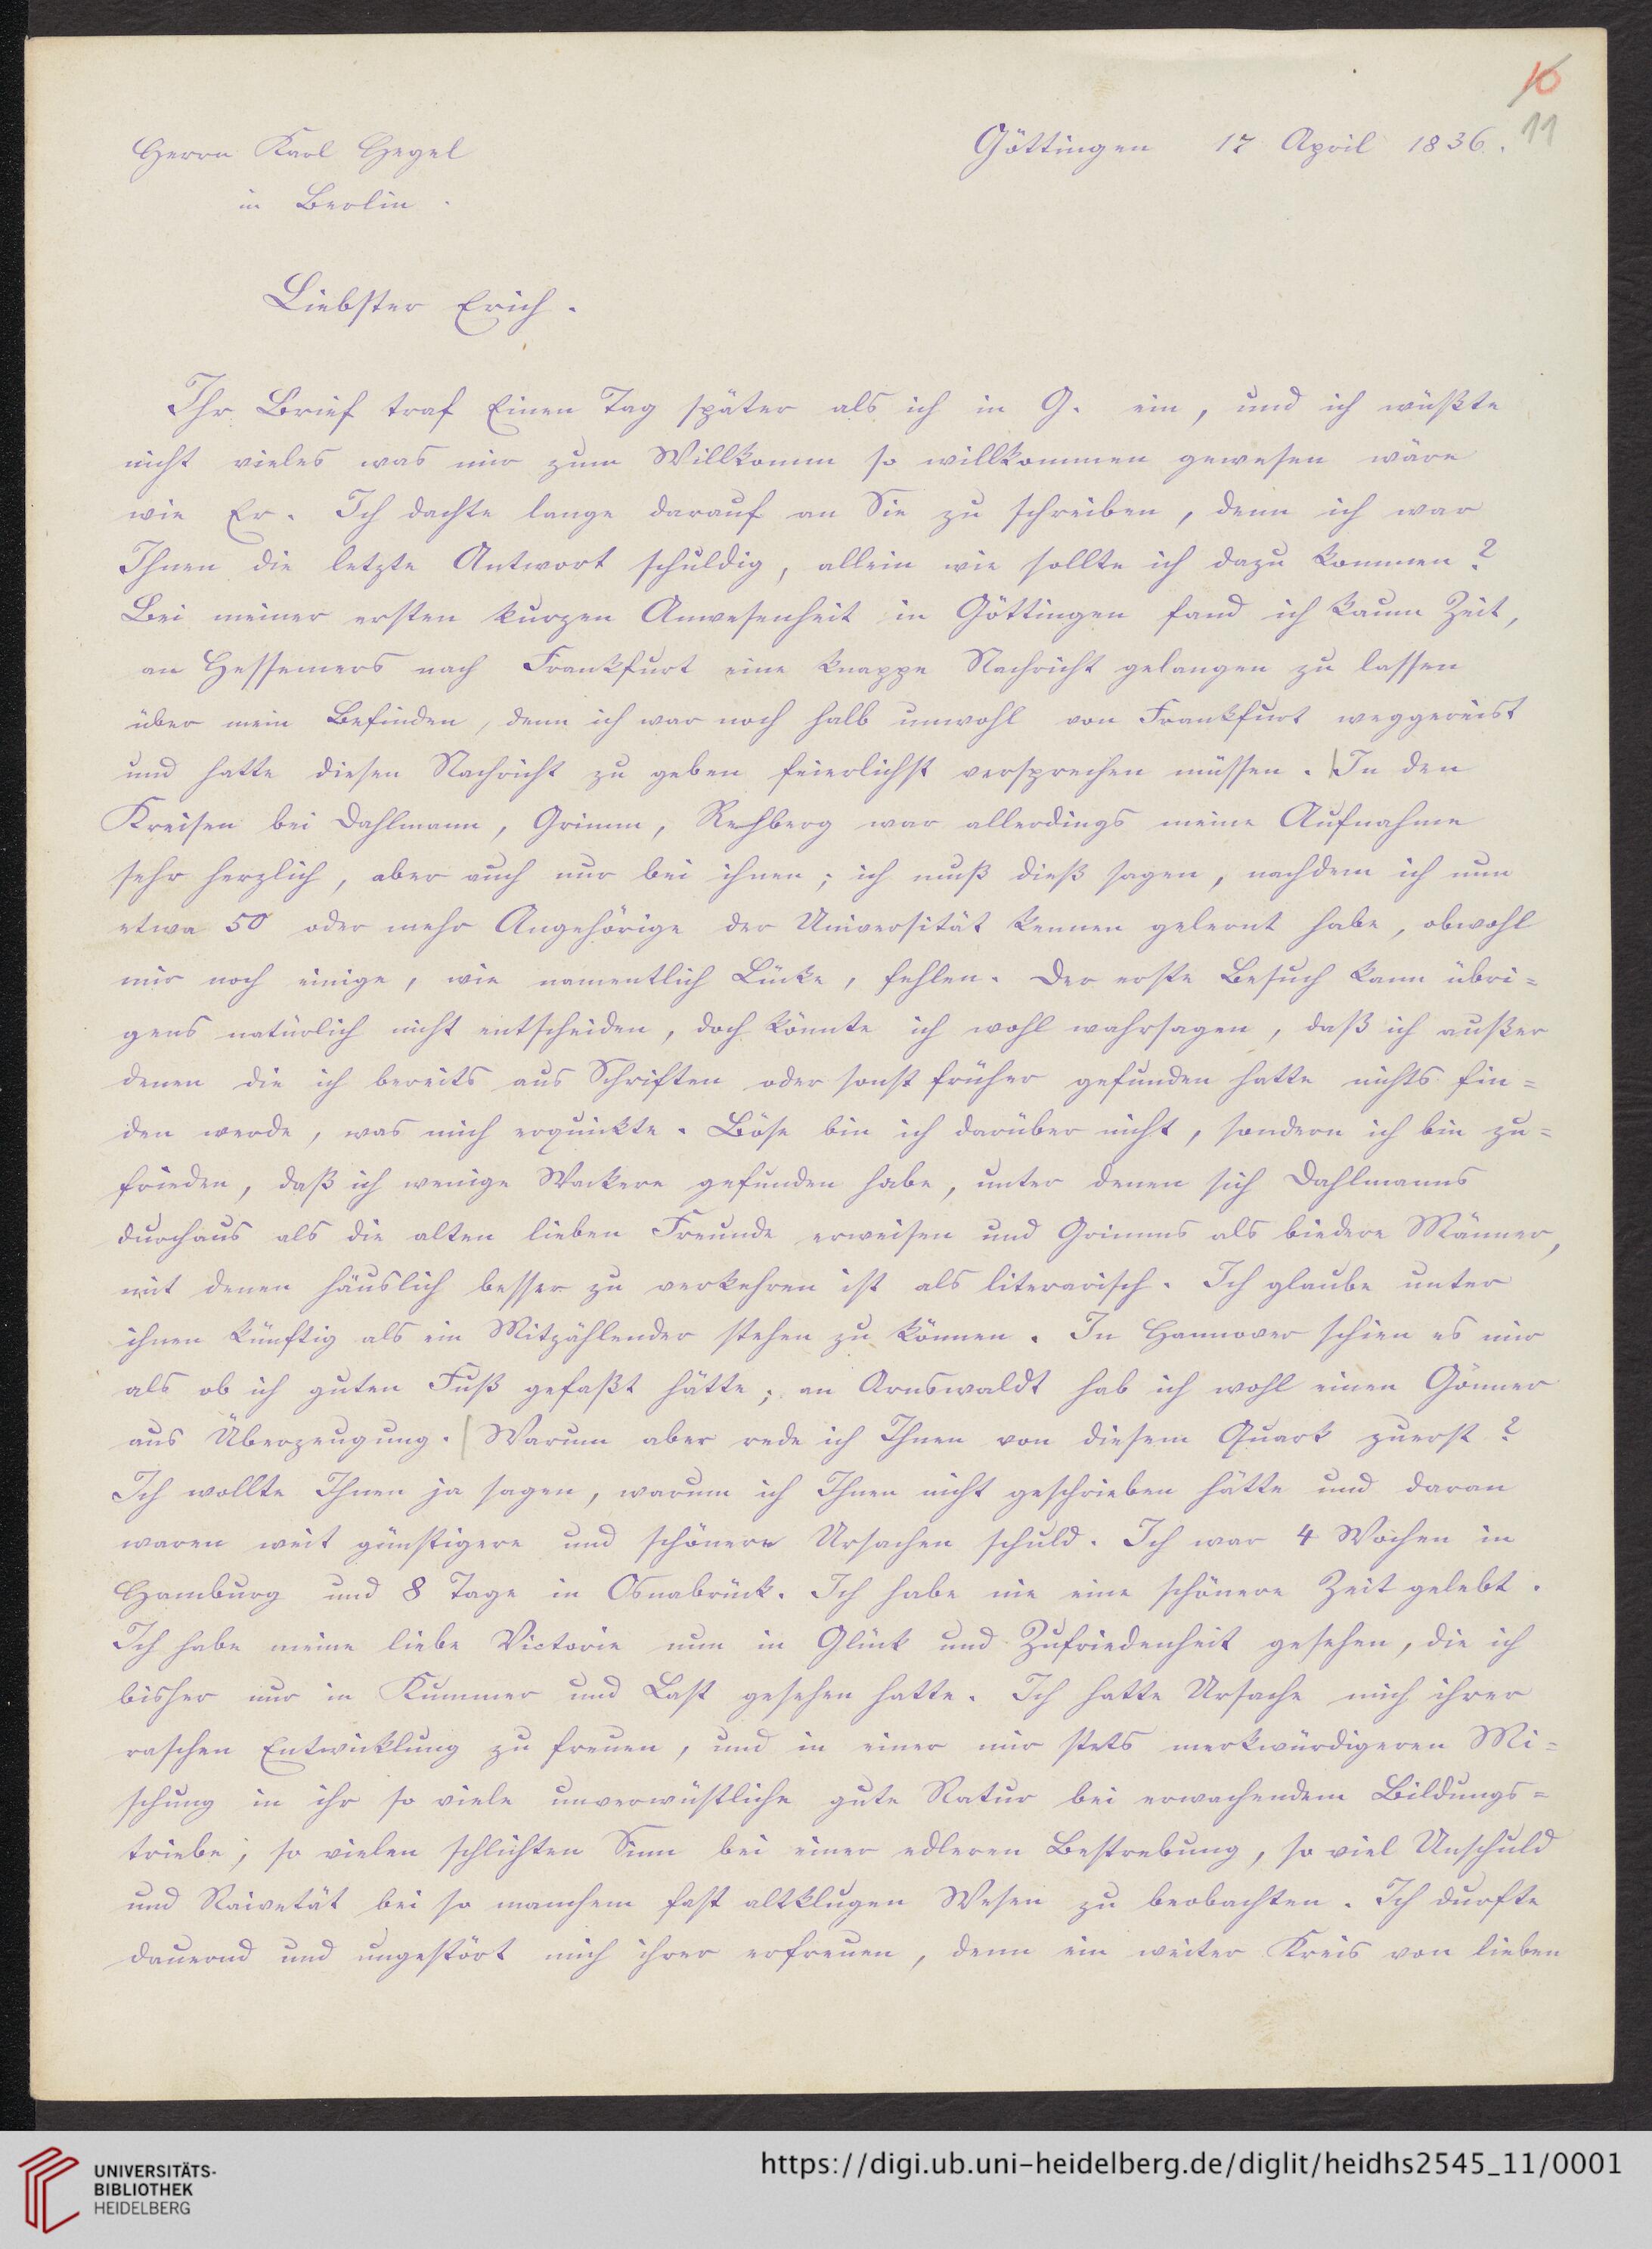 10
11
Herrn Karl Hegel
Göttingen 17 April 1836.
in Berlin.
Liebster Erich.
Ihr Brief traf Einen Tag später als ich in G. ein, und ich wüßte
nicht vieles was mir zum Willkomm so willkommen gewesen wäre
wie Er. Ich dachte lange darauf an Sie zu schreiben, denn ich war
Ihnen die letzte Antwort schuldig, allein wie sollte ich dazu kommen?
Bei meiner ersten kurzen Anwesenheit in Göttingen fand ich kaum Zeit,
an Hessemers nach Frankfurt eine knappe Nachricht gelangen zu lassen
über mein Befinden, denn ich war noch halb unwohl von Frankfurt weggereist
und hatte diesen Nachricht zu geben feierlichst versprechen müssen. In den
Kreisen bei Dahlmann, Grimm, Rehberg war allerdings meine Aufnahme
sehr herzlich, aber auch nur bei ihnen; ich muß dieß sagen, nachdem ich nun
etwa 50 oder mehr Angehörige der Universität kennen gelernt habe, obwohl
mir noch einige, wie namentlich Lücke, fehlen. Der erste Besuch kann übri=
gens natürlich nicht entscheiden, doch könnte ich wohl wahrsagen, daß ich außer
denen die ich bereits aus Schriften oder sonst früher gefunden hatte nichts fin=
den werde, was mich erquickte. Böse bin ich darüber nicht, sondern ich bin zu=
frieden, daß ich wenige Wackere gefunden habe, unter denen sich Dahlmanns
durchaus als die alten lieben Freunde erweisen und Grimms als biedere Männer,
mit denen häuslich besser zu verkehren ist als literarisch. Ich glaube unter
ihnen künftig als ein Mitzählender stehen zu können. In Hannover schien es mir
als ob ich guten Fuß gefaßt hätte; an Arnswaldt hab ich wohl einen Gönner
aus Überzeugung. Warum aber rede ich Ihnen von diesem Quark zuerst?
Ich wollte Ihnen ja sagen, warum ich Ihnen nicht geschrieben hätte und daran
waren weit günstigere und schönere Ursachen schuld. Ich war 4 Wochen in
Hamburg und 8 Tage in Osnabrück. Ich habe nie eine schönere Zeit gelebt.
Ich habe meine liebe Victorie nun in Glück und Zufriedenheit gesehen, die ich
bisher nur in Kummer und Last gesehen hatte. Ich hatte Ursache mich ihrer
raschen Entwicklung zu freuen, und in einer mir stets merkwürdigeren Mi=
schung in ihr so viele unverwüstliche gute Natur bei erwachendem Bildungs=
triebe, so vielen schlichten Sinn bei einer edleren Bestrebung, so viel Unschuld
und Naivetät bei so manchem fast altklugen Wesen zu beobachten. Ich durfte
dauernd und ungestört mich ihrer erfreuen, denn ein weiter Kreis von lieben
UNIVERSITÄTS-
BIBLIOTHEK
HEIDELBERG
https://digi.ub.uni-heidelberg.de/diglit/heidhs2545_11/0001